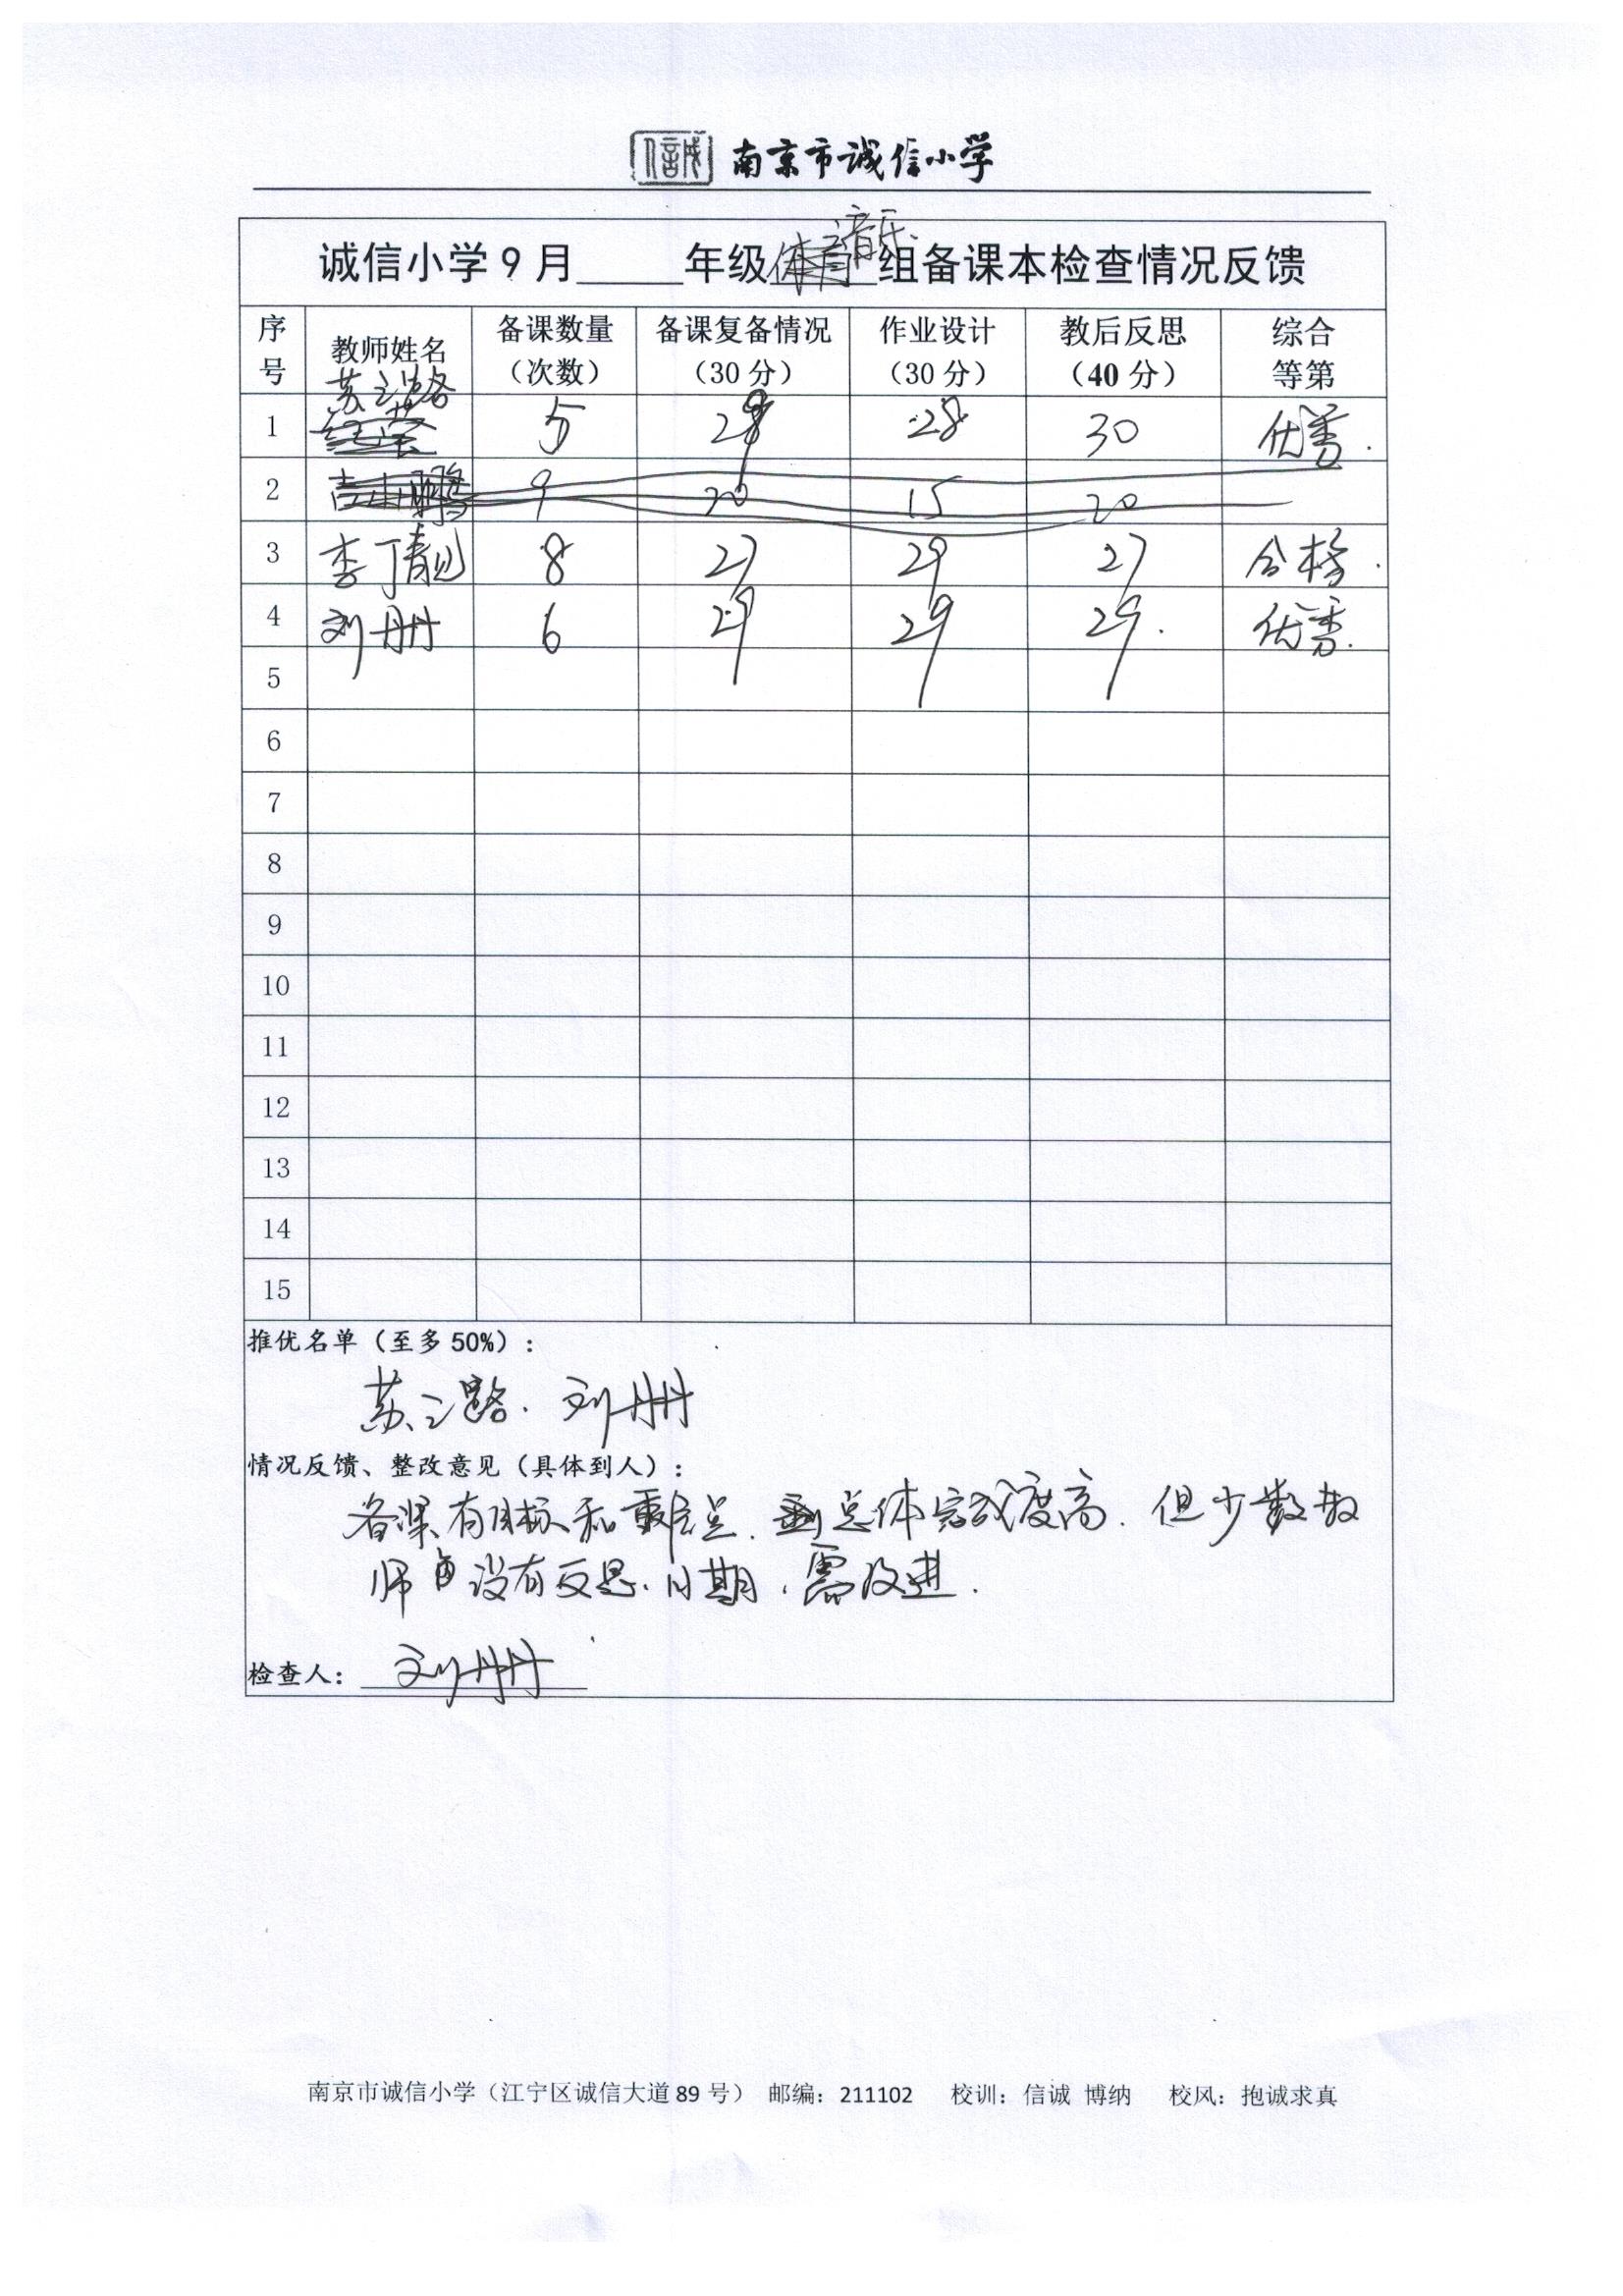 南京市诚信小学
诚信小学9月_____年级音乐组备课本检查情况反馈
序号 教师姓名 备课数量（次数） 备课复备情况（30分） 作业设计（30分） 教后反思（40分） 综合等第
1 苏之路 5 28 28 30 优秀.
2 9 20 15 20
3 李丁靓 8 27 29 27 合格.
4 刘丹丹 6 29 29 29. 优秀.
5
6
7
8
9
10
11
12
13
14
15
推优名单（至多50%）：
苏之路. 刘丹丹
情况反馈、整改意见（具体到人）：
备课有目标和重难点. 总体完成度高. 但少数教
师没有反思.日期.需改进.
检查人：刘丹丹
南京市诚信小学（江宁区诚信大道89号） 邮编：211102 校训：信诚 博纳 校风：抱诚求真